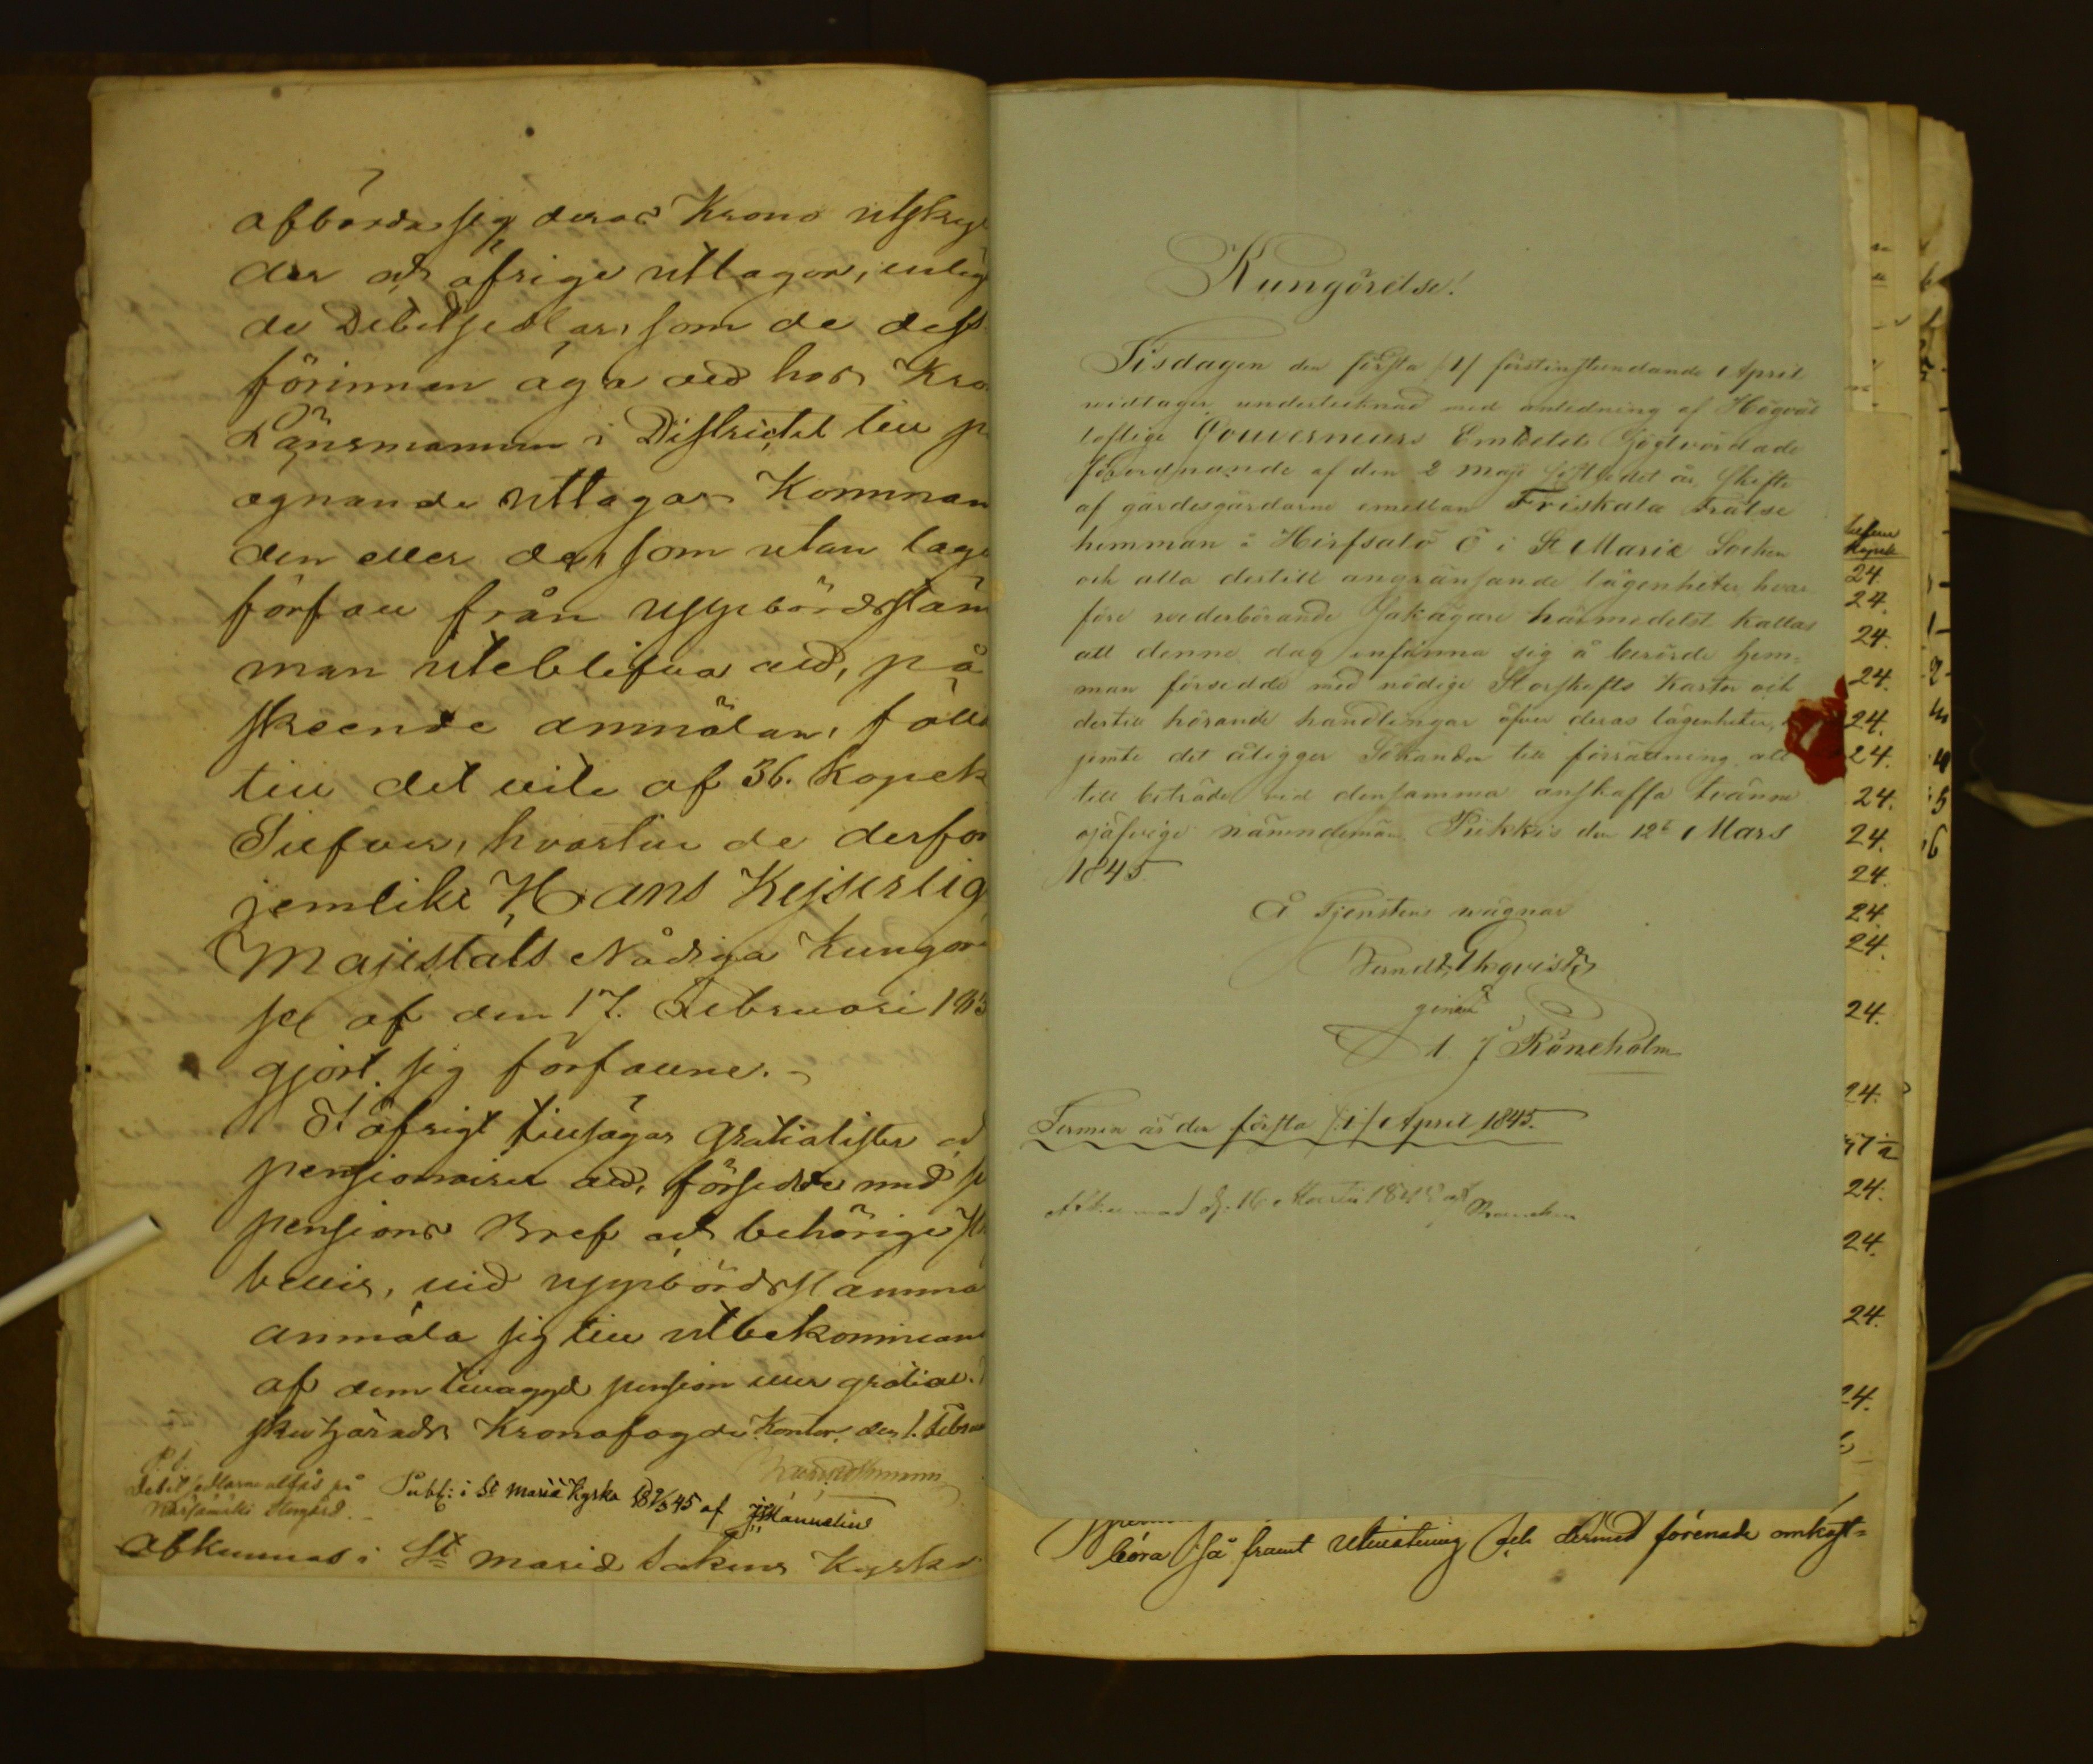 afbörda sig deras Krono utskyl
der och öfrige utlagor, enlig
de Debetsedlar, som de dess
förinnan äga att hos Kro
Länsmannen i Districtet till p
ognande uttagas Komman
den eller de, som utan laga
förfall från uppbördsstäm
man uteblifva att, på
skeende anmälan, fälla
till det vite af 36. Kopek
Silfver, hvartill de derför
jemlikt Hans Kejserlig
Majestäts Nådiga Kungör
se af den 17. Februari 183
gjort sig förfallne.
I öfrigt tillsägas Gratialister och
pensionairer att, försedde med
pensions Bref och behörige
bevis, vid uppbördsstämma
anmäla sig till utbekomman
af dem tillagd pension eller gratial.
Härads Kronofogde Kontor den 1. Febru
P. S.
Debetsedlarne utfås på
Storgård.
Publ: i St Mariæ Kyrka d 9/3 45 af
Afkunnas i St Mariæ Sokens Kyrka
Kungörelse!
Tisdagen den första /1/ förstinstundande April
vidtager undertecknad med anledning af Högväl
loflige Gouverneurs Embetets Högtvördade
förordnande af den 2 Maji sistledet år, Skifte
af gärdesgårdarne emellan Friskala Frälse
hemman å Hirfsalo Ö i St Mariæ Socken
och alla dertill angränsande lägenheter, hvar
före vederbörande Jordägare härmedelst kallas
att denne dag infinna sig å berörde hem-
man försedde med nödige Storskifts Kartor och
dertill hörande handlingar öfver deras lägenheter,
jemte det åligger Sökanden till förrättning att
till biträde vid densamma anskaffa tvänne
ojäfvige nämndemän. Piikkis den 12 Mars
1845
På Tjenstens wägnar
genom
A J Röneholm
Termin är den första /:1:/ April 1845.
d. 16 Martii 1845 af
Silfver
Kopek
24.
24.
24.
24.
24.
24.
24.
24.
24.
24.
24.
24.
24.
24.
24.
24.
24.
böra så framt utmätning och dermed förenade omkost-